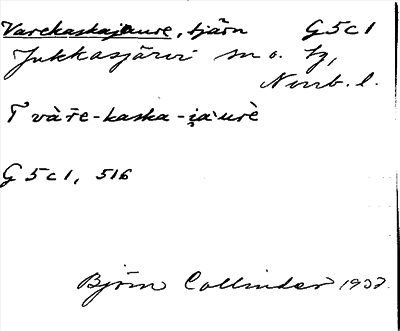 Varekaskajaure, tjärn G5c1
Jukkasjärvi sn o. tg,
Norrb. l.
T và̄re-kaska-i̯a'urè
G5c1, 516
Björn Collinder 1937.